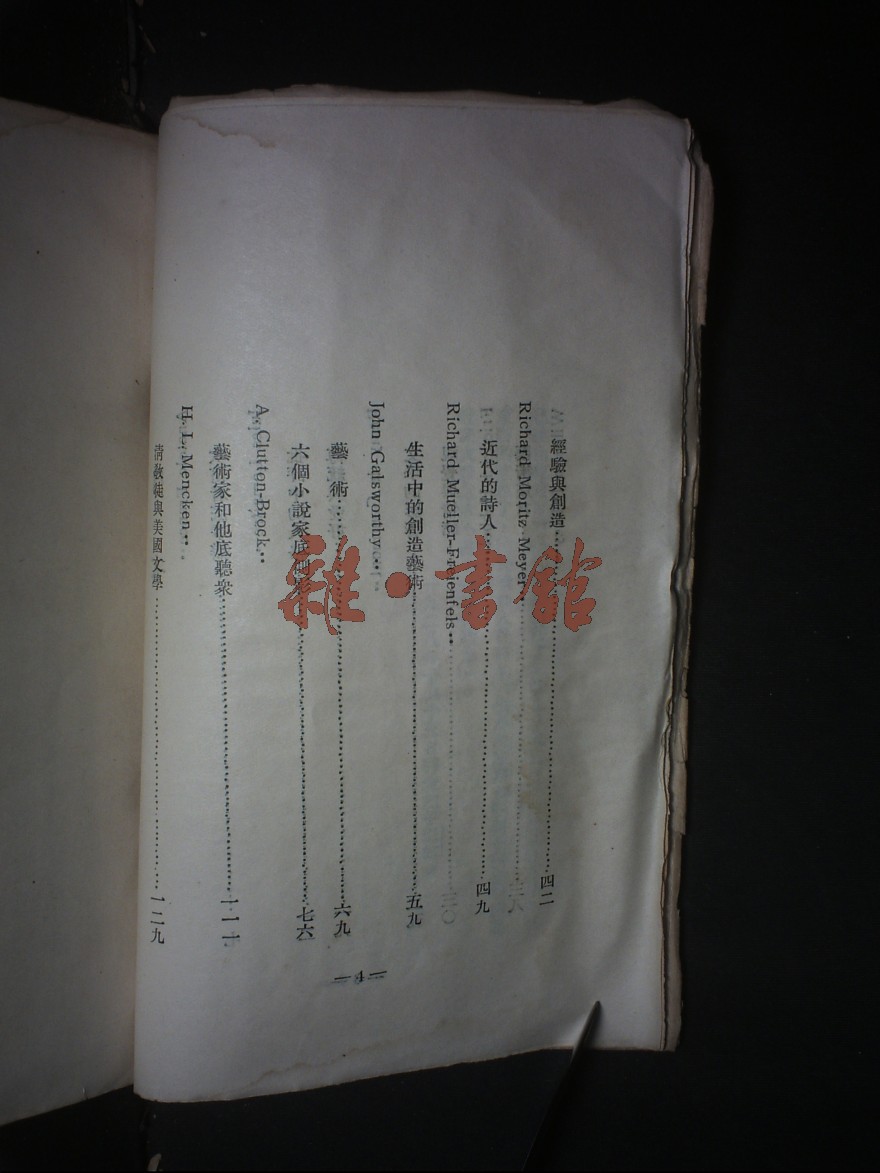 經驗與創造……四二
Richard Moritz Meyer
近代的詩人……四九
Richard Mueller-Freienfels
生活中的創造藝術……五九
John Galsworthy
藝術……六九
六個小說家底側影……七六
A. Clutton-Brock
藝術家和他底聽衆……一一一
H. L. Mencken
清敎徒與美國文學……一二九
雜·書館